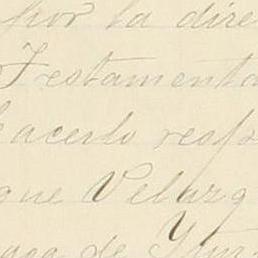 por la dire
Testamenta
hacerlo resp
que Velazq
de